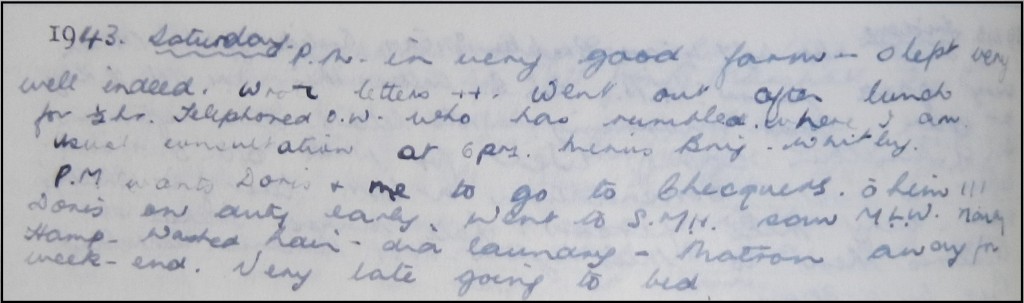 1943. Saturday. P.M. in very good form - slept very
well indeed. Wrote letters ++. Went out after lunch
for ½ hr. Telephoned O.W. who has rumbled where I am.
Usual consultation at 6pm. minus Brig. Whitby.
P.M wants Doris + me to go to Chequers. õ him!!!
Doris on duty early. Went to S.M.H. saw M.L.W. Nancy
Hamp- Washed hair - did laundry - Matron away for
week-end. Very late going to bed